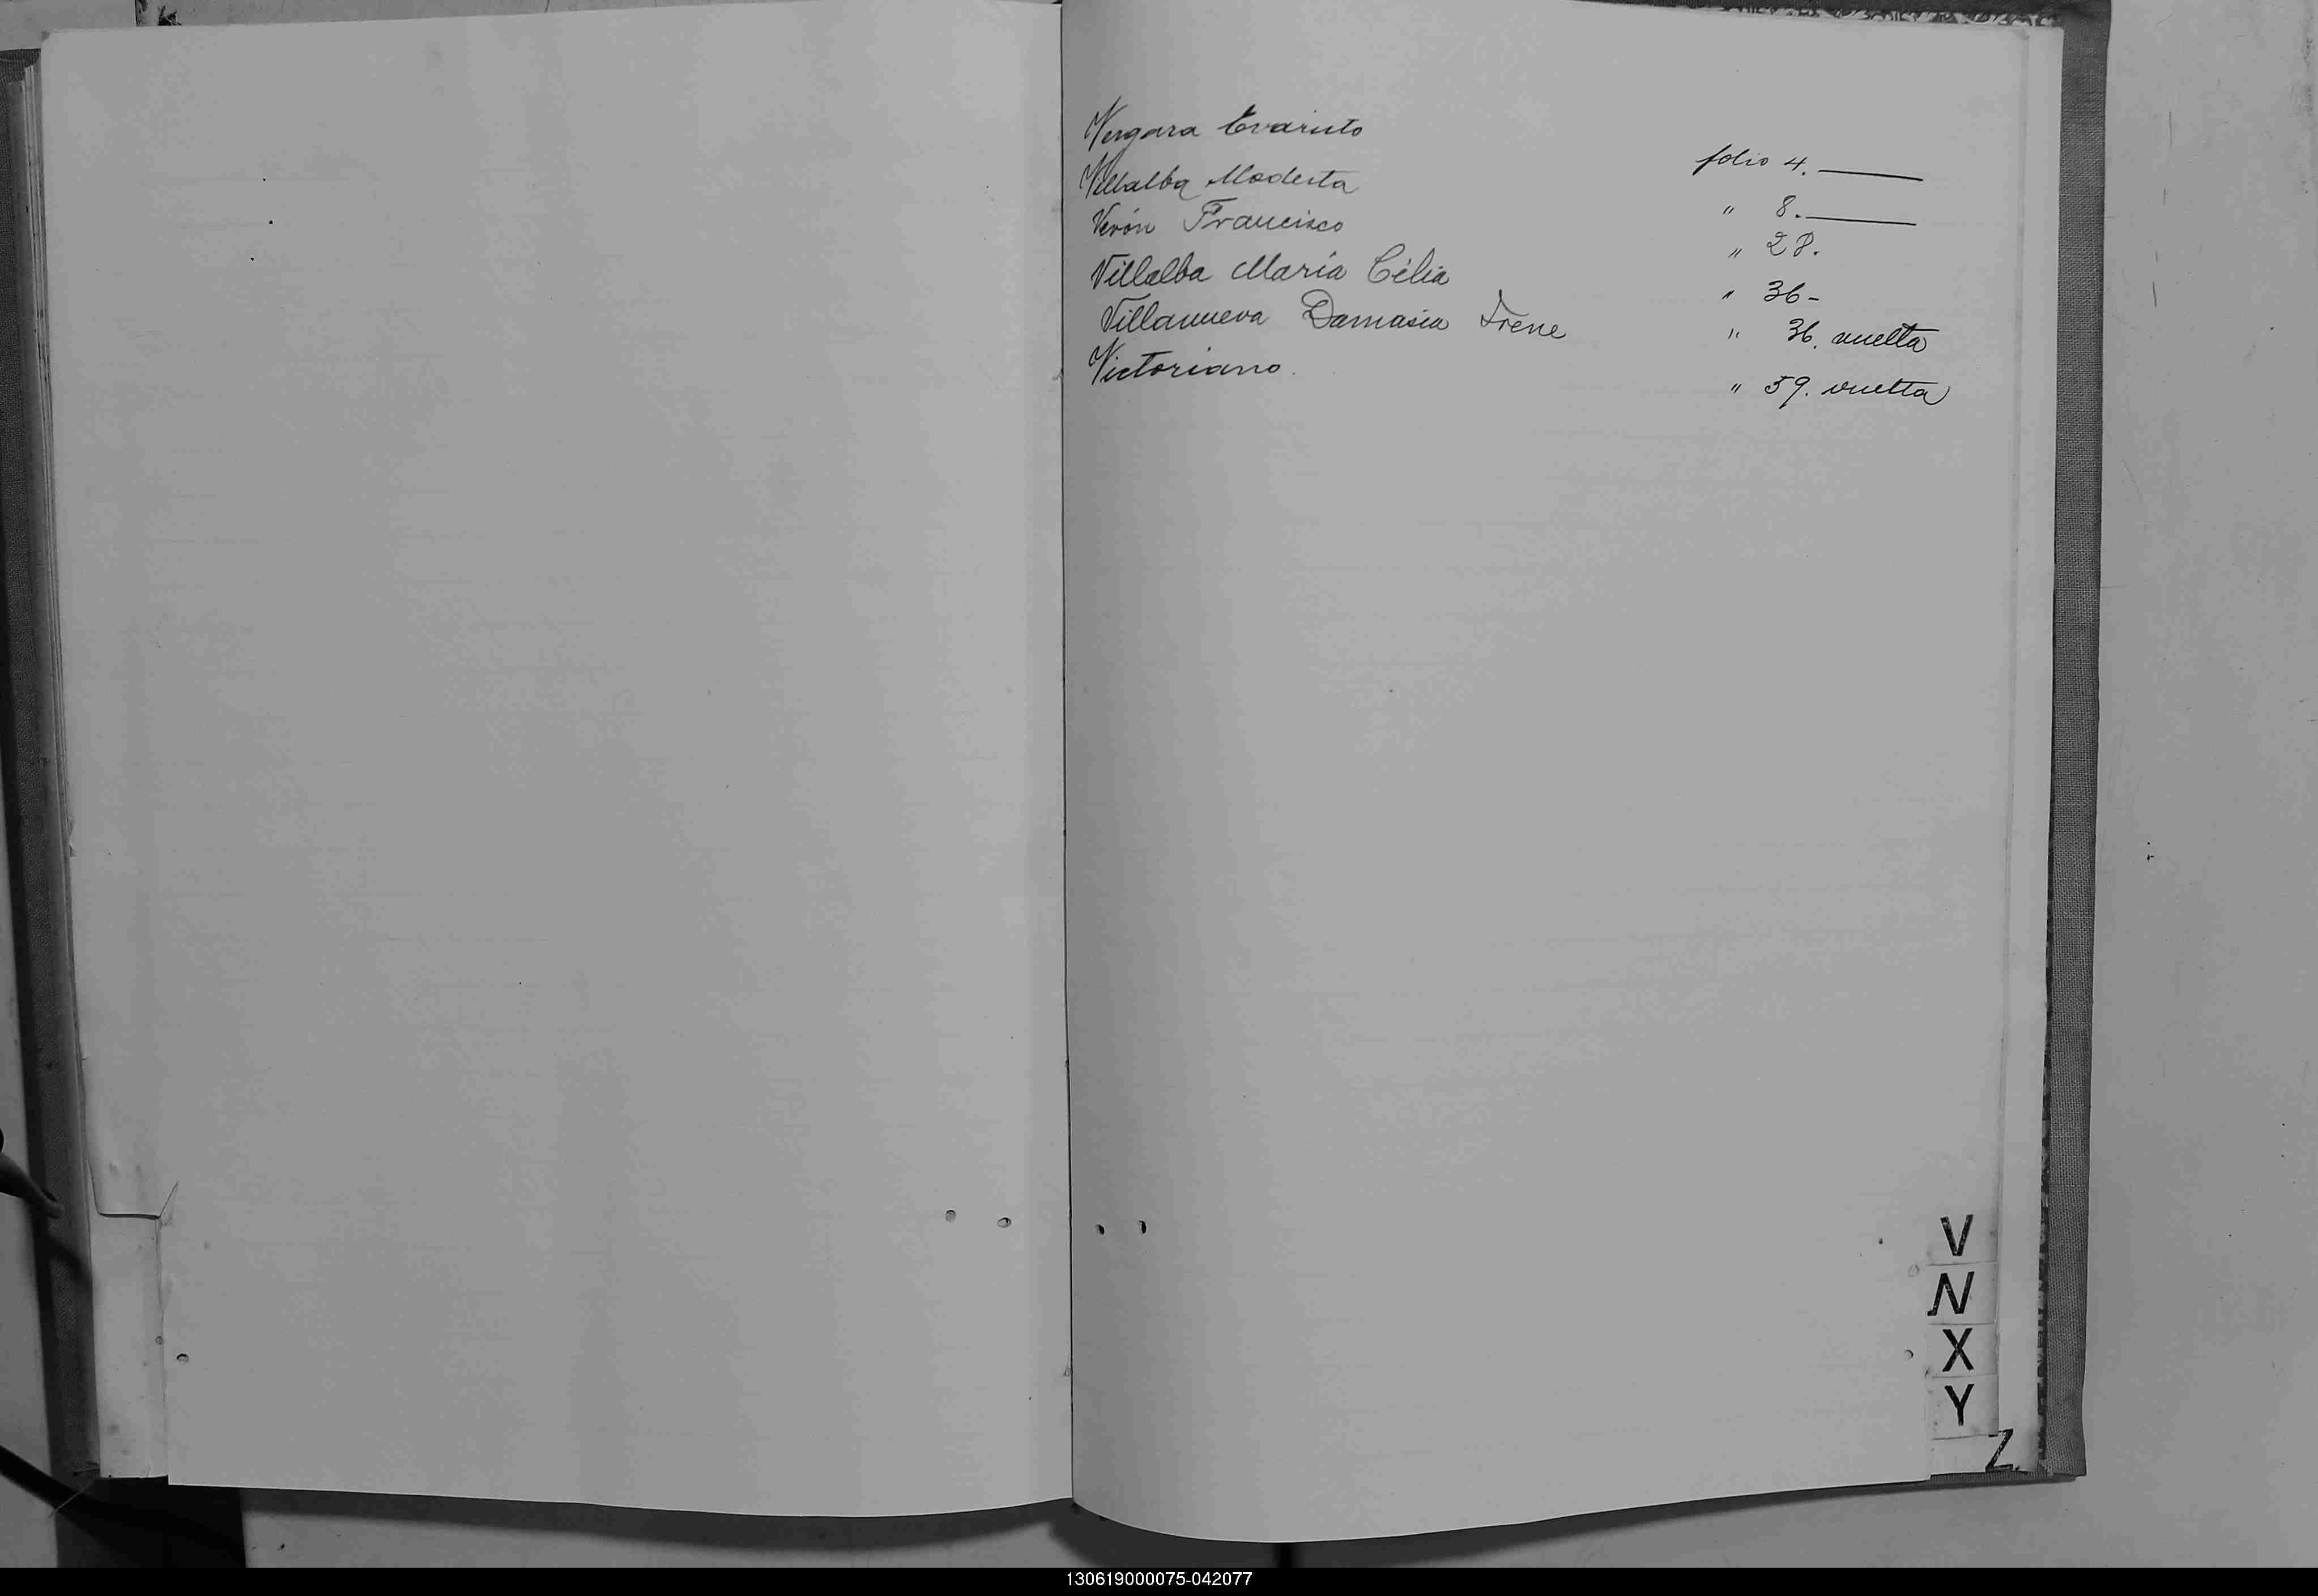 Vergara Evaristo folio 4.
Villalba Modesta " 8.
Verón Francisco " 28.
Villalba María Célia " 36-
Villanueva Damasia Irene " 36. vuelta
Victoriano. " 59. vuelta
V
N
X
Y
Z
130619000075-042077